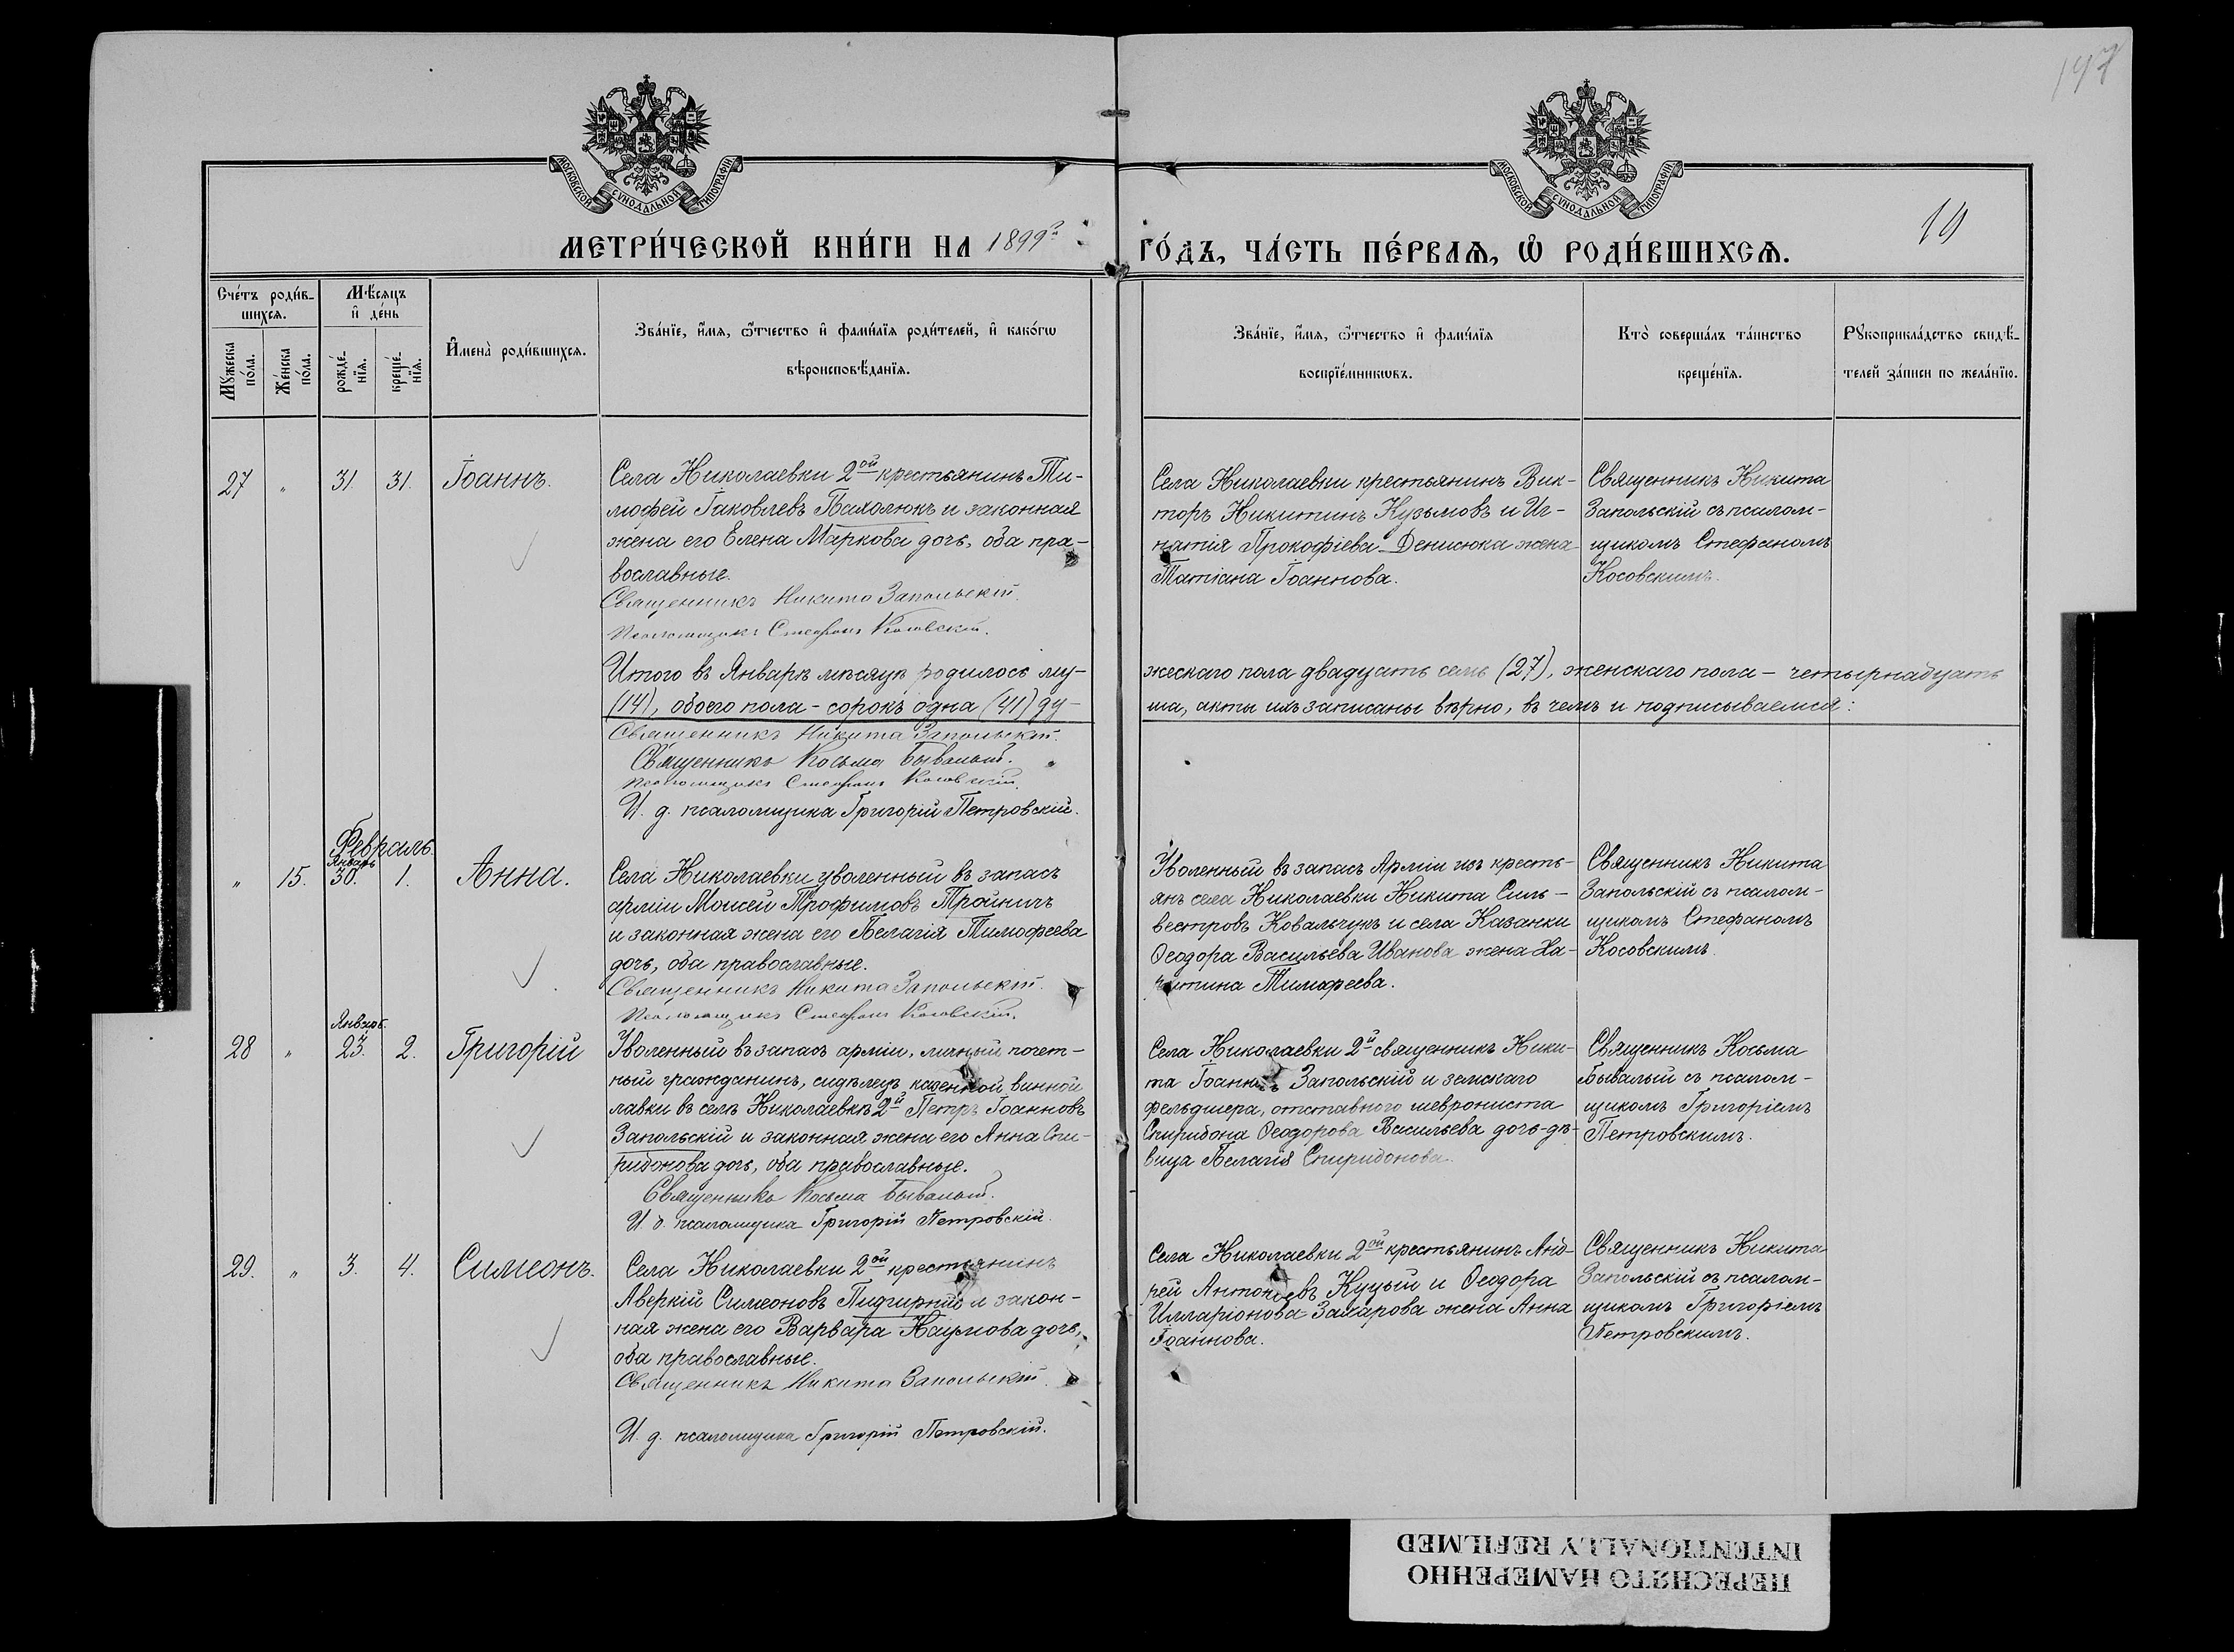 147
19
МОСКОВСКОЙ СѴНОДАЛЬНОЙ ТИПОГРАФІИ
МОСКОВСКОЙ СѴНОДАЛЬНОЙ ТИПОГРАФІИ
МЕТРИ́ЧЕСКОЙ КНИ́ГИ НА 1899й ГО́ДЪ, ЧА́СТЬ ПЕ́РВАѦ, Ѽ РОДИ́ВШИХСѦ.
Сче́тъ роди́в-
шихсѧ.
Мꙋ́жеска
по́ла.
Же́нска
по́ла.
Мѣ́сѧцъ
и҆ де́нь
рожде́-
нїѧ.
креще́-
нїѧ.
И҆мена̀ роди́вшихсѧ.
Зва́нїе, и҆́мѧ, ѻ҆́тчество и҆ фами́лїѧ роди́телей, и҆ како́гѡ
вѣроисповѣ́данїѧ.
Зва́нїе, и҆́мѧ, ѻ҆́тчество и҆ фами́лїѧ
воспрїе́мникѡвъ.
Кто̀ соверша́лъ та́инство
креще́нїѧ.
Рꙋкоприкла́дство свидѣ́-
телей за́писи по жела́нїю.
27 " 31. 31. Іоаннъ.
Села Николаевки 2ой крестьянинъ Ти-
мофей Іаковлевъ Бахолюкъ и законная
жена его Елена Маркова дочь, оба пра-
вославные.
Священникъ Никита Запольскій.
Псаломщикъ Стефанъ Косовскій.
Села Николаевки крестьянинъ Вик-
торъ Никитинъ Кузьмовъ и Иг-
натія Прокофіева Денисюка жена
Татіана Іоаннова.
Священникъ Никита
Запольскій съ псалом-
щикомъ Стефаномъ
Косовскимъ.
Итого въ Январѣ мѣсяцѣ родилось му-
жескаго пола двадцать семь (27), женскаго пола – четырнадцать
(14), обоего пола – сорокъ одна (41) ду-
ша, акты ихъ записаны вѣрно, въ чемъ и подписываемся:
Священникъ Никита Запольскій.
Священникъ Косьма Бывалый.
Псаломщикъ Стефанъ Косовскій.
И. д. псаломщика Григорій Петровскій.
Февраль.
" 15. Январь 30. 1. Анна.
Села Николаевки уволенный въ запасъ
арміи Моисей Трофимовъ Тройничъ
и законная жена его Пелагія Тимофеева
дочь, оба православные.
Священникъ Никита Запольскій.
Псаломщикъ Стефанъ Косовскій.
Уволенный въ запасъ Арміи изъ кресть-
янъ села Николаевки Никита Силь-
вестровъ Ковальчукъ и села Казанки
Ѳеодора Васильева Иванова жена Ха-
ритина Тимофеева.
Священникъ Никита
Запольскій съ псалом-
щикомъ Стефаномъ
Косовскимъ.
28 " Январь. 23. 2. Григорій
Уволенный въ запасъ арміи, личный почет-
ный гражданинъ, сидѣлецъ казенной винной
лавки въ селѣ Николаевкѣ 2й Петръ Іоанновъ
Запольскій и законная жена его Анна Спи-
ридонова дочь, оба православные.
Священникъ Косьма Бывалый.
И. д. псаломщика Григорій Петровскій.
Села Николаевки 2й священникъ Ники-
та Іоанновъ Запольскій и земскаго
фельдшера, отставного шеврониста
Спиридона Ѳеодорова Васильева дочь-дѣ-
вица Пелагія Спиридонова.
Священникъ Косьма
Бывалый съ псалом-
щикомъ Григоріемъ
Петровскимъ.
29. " 3. 4. Симеонъ.
Села Николаевки 2ой крестьянинъ
Аверкій Симеоновъ Пидгирный и закон-
ная жена его Варвара Наумова дочь,
оба православные.
Священникъ Никита Запольскій.
И. д. псаломщика Григорій Петровскій.
Села Николаевки 2ой крестьянинъ Анд-
рей Антоніевъ Куцый и Ѳеодора
Илларіонова Захарова жена Анна
Іоаннова.
Священникъ Никита
Запольскій съ псалом-
щикомъ Григоріемъ
Петровскимъ.
ПЕРЕСНЯТО НАМЕРЕННО
INTENTIONALLY REFILMED